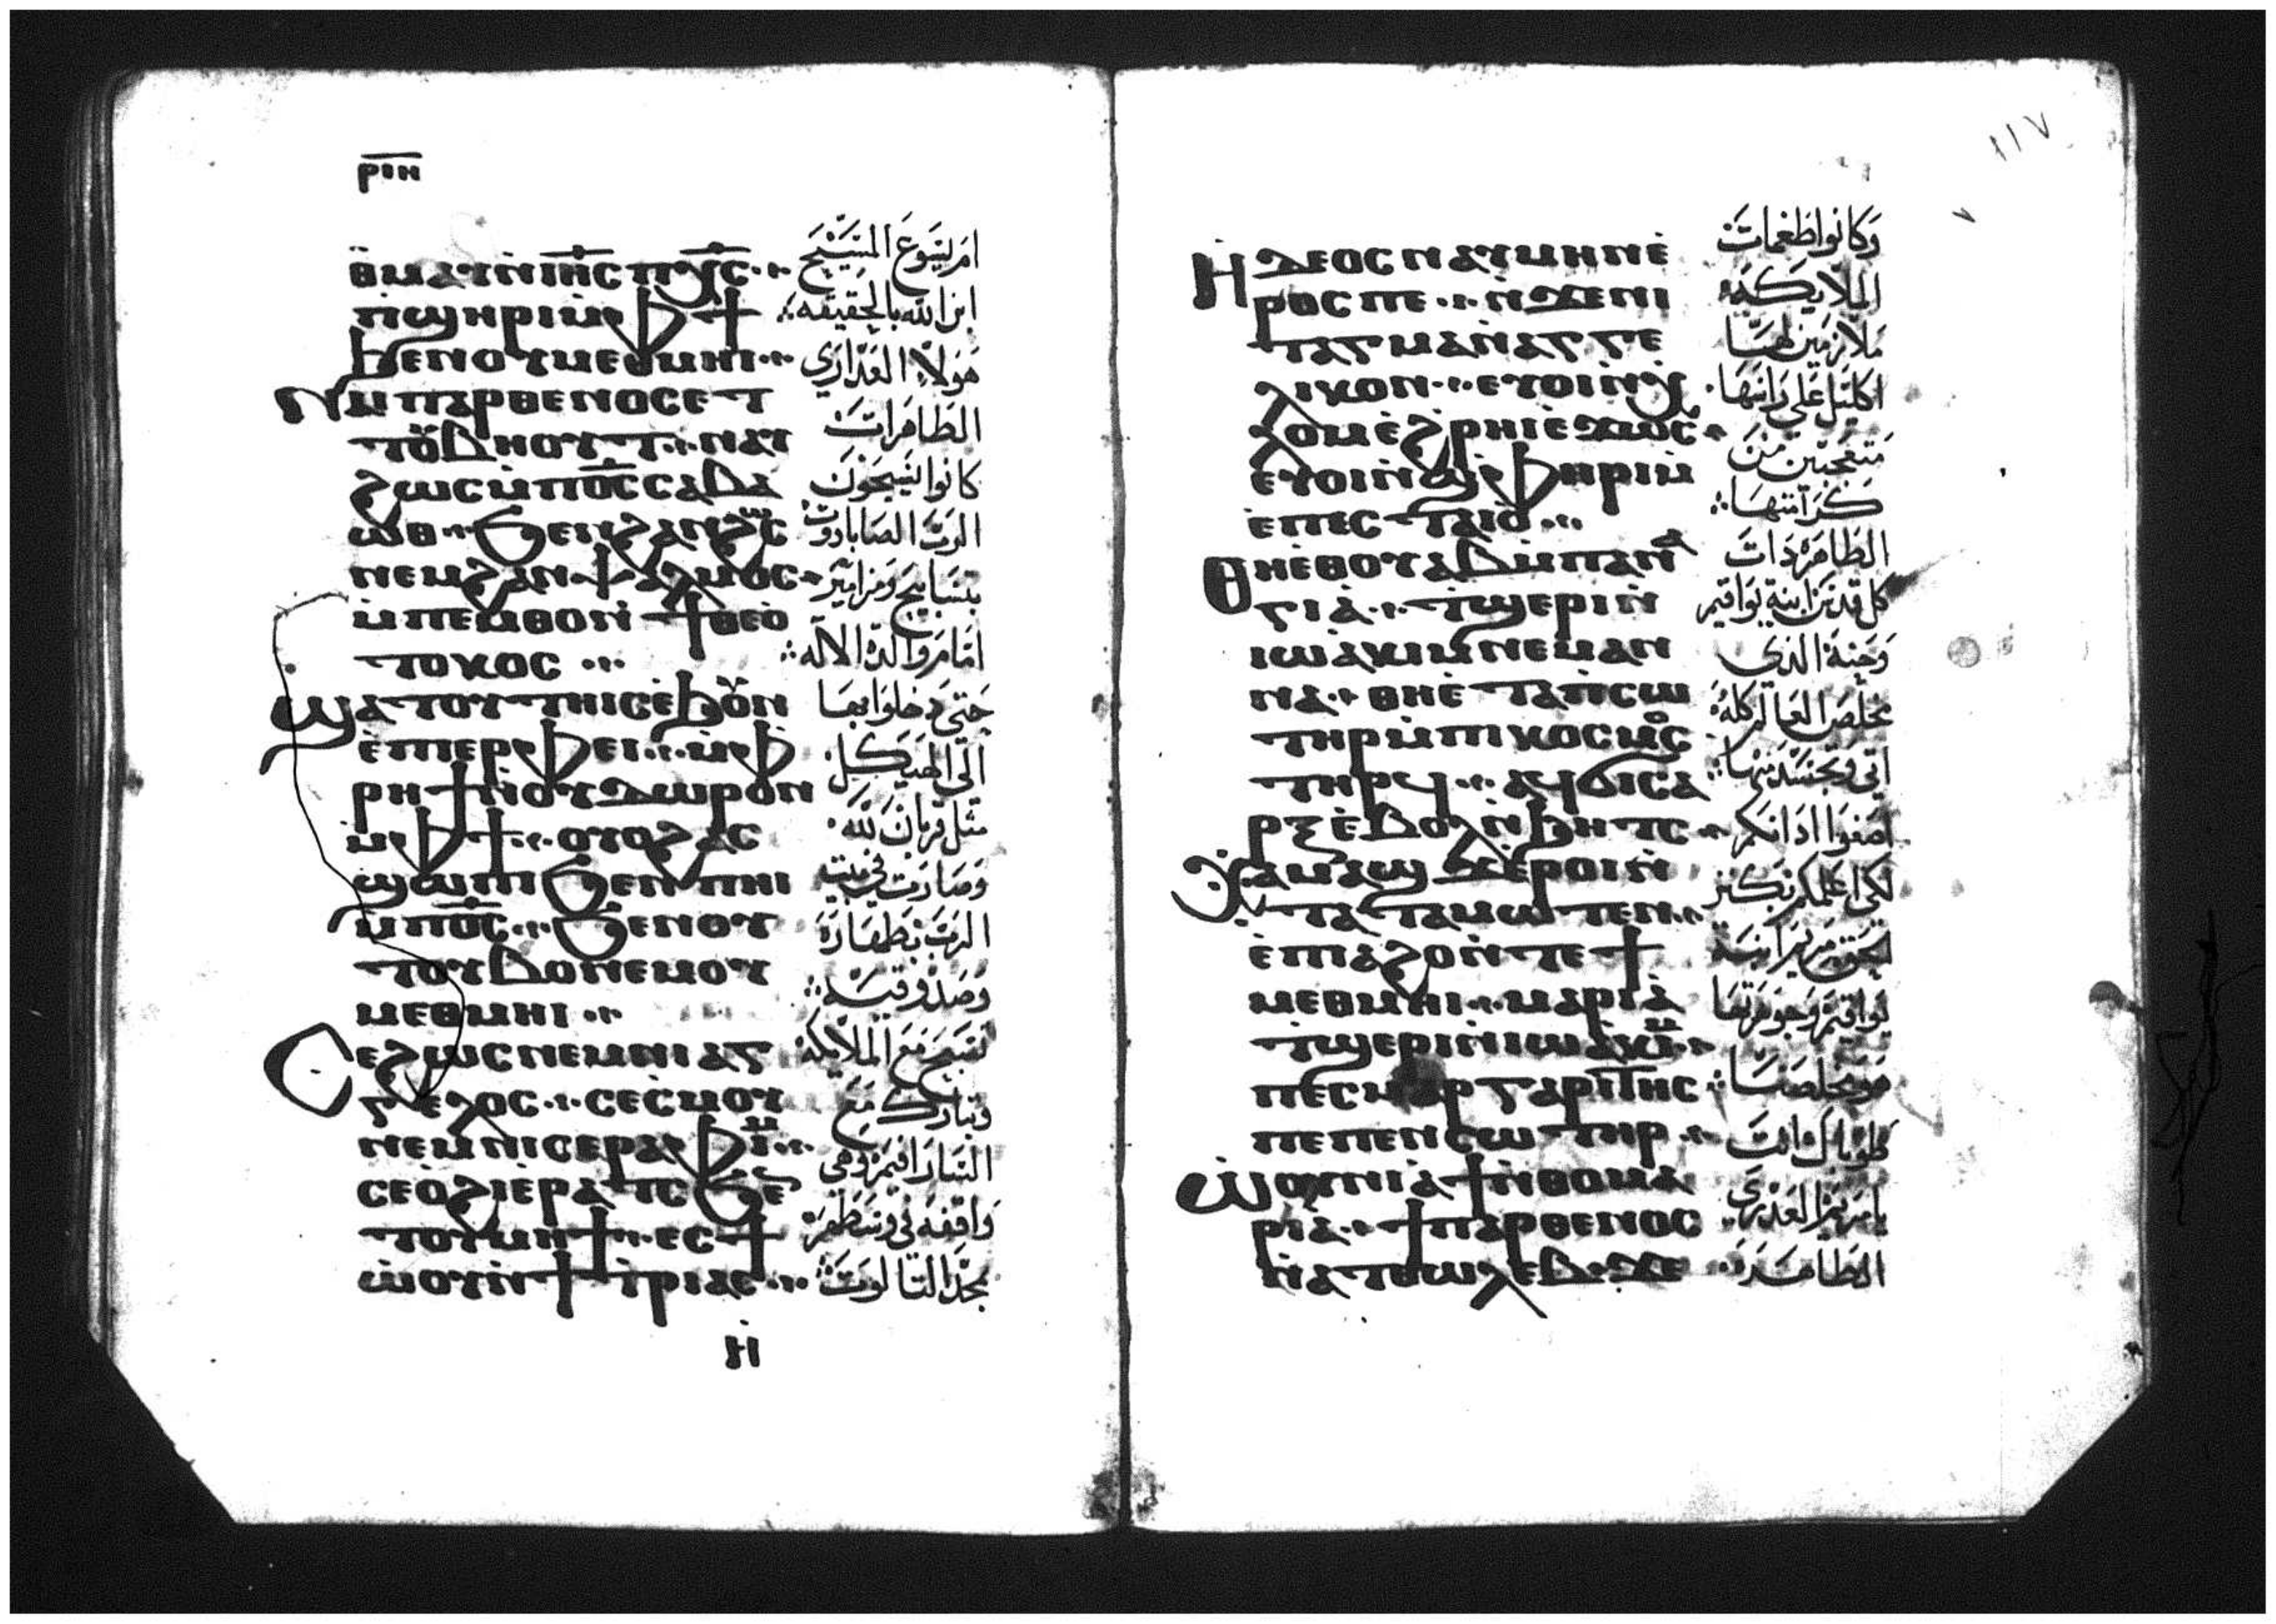 ⲣⲓⲏ
ⲑⲙⲁⲩ ⲛ̀ⲓⲏ̅ⲥ̅ ⲡⲭ̅ⲥ̅ ⁘
ⲡϣⲏⲣⲓ ⲙ̀ⲫϯ
ϧⲉⲛⲟⲩⲙⲉⲑⲙⲏⲓ ⁘
Ⲛⲁⲓⲡⲁⲣⲑⲉⲛⲟⲥ ⲉⲧ
ⲧⲟⲩⲃⲏⲟⲩⲧ ⁘ ⲛⲁⲩ
ϩⲱⲥ ⲙ̀ⲡⲟ̅ⲥ̅ ⲥⲁⲃⲁ
ⲱⲑ ⁘ ϧⲉⲛ ϩⲁⲛϩⲱⲥ
ⲛⲉⲙ ϩⲁⲛⲯⲁⲗⲙⲟⲥ ⁘
ⲙ̀ⲡⲉⲙⲑⲟ ⲛ̀ϯⲑⲉⲟ̀
ⲧⲟⲕⲟⲥ ⁘
Ϣⲁⲧⲟⲩⲧⲏⲓⲥ ⲉϧⲟⲩⲛ
ⲉ̀ⲡⲓⲉⲣⲫⲉⲓ ⁘ ⲙ̀ⲫ
ⲣⲏϯ ⲛⲟⲩⲇⲱⲣⲟⲛ
ⲙ̀ⲫϯ ⁘ ⲟⲩⲟϩ ⲁⲥ
ϣⲱⲡⲓ ϧⲉⲛ ⲡⲏⲓ
ⲙⲡⲟ̅ⲥ̅ ⁘ ϧⲉⲛⲟⲩ
ⲧⲟⲩⲃⲟ ⲛⲉⲙ ⲟⲩ
ⲙⲉⲑⲙⲏⲓ ⁘
Ⲥⲉϩⲱⲥ ⲛⲉⲙ ⲛⲓⲁⲅ
ⲅⲉⲗⲟⲥ ⁘ ⲥⲉⲥ̀ⲙⲟⲩ
ⲛⲉⲙ ⲛⲓⲥⲉⲣⲁⲫⲓⲙ ⁘
ⲥⲉⲟ̀ϩⲓ ⲉⲣⲁⲧⲥ ϧⲉⲛ
ⲧⲟⲩⲙⲏϯ ⁘ ⲉⲥϯ
ⲱ̀ⲟⲩ ⲛ̀ϯⲧⲣⲓⲁⲥ ⁘
ⲏ̀
ام يسوع المسيح
ابن الله بالحقيقه
هولاء العذارى
الطاهرات
كانوا يسبحون
الرب الصاباووت
بتسابيح ومزامير
امام والدة الاله
حتى دخلوا بها
الى الهيكل
مثل قربان لله
وصارت في بيت
الرب بطهارة
وصدوقيه
تسبح مع الملايكه
وتبارك مع
السارافيم وهى
واقفه في وسطهم
تمجد التالوت
١١٧
Ⲏ̀ ⲇⲉⲟⲥ ⲛⲁⲩⲙⲏⲛ ⲛⲉ̀
ⲣⲟⲥ ⲡⲉ ⁘ ⲛ̀ϫⲉⲛⲓ
ⲧⲁⲅⲙⲁ ⲛ̀ⲁⲅⲅⲉ
ⲗⲓⲕⲟⲛ ⁘ ⲉⲩⲟⲓ ⲛ̀ⲭ
ⲗⲟⲙ ⲉ̀ϩⲣⲏⲓ ⲉ̀ϫⲱⲥ ⁘
ⲉⲩⲟⲓ ⲛ̀ϣⲫⲏⲣⲓ ⲙ̀
ⲉ̀ⲡⲉⲥⲧⲁⲓⲟ̀ ⁘
Ⲑⲏⲉ̀ⲑⲟⲩⲁⲃ ⲙ̀ⲡⲁⲛⲁ
ⲅⲓⲁ̀ ⁘ ⲧ̀ϣⲉⲣⲓ ⲛ̀
ⲓⲱⲁ̀ⲕⲓⲙ ⲛⲉⲙ ⲁⲛ
ⲛⲁ ⁘ ⲑⲏⲉ̀ⲧⲁⲡⲥⲱ
ⲧⲏⲣ ⲙ̀ⲡⲓⲕⲟⲥⲙⲟⲥ
ⲧⲏⲣϥ ⁘ ⲁϥϭⲓⲥⲁ
ⲣⲝ ⲉ̀ⲃⲟⲗ ⲛ̀ϧⲏⲧⲥ ⁘
ⲓⲁ ⲙⲁϣϫ ⲉ̀ⲣⲟⲓ ⲛ̀
ⲧⲁⲧⲁⲙⲱⲧⲉⲛ ⁘
ⲉ̀ⲡⲓⲁϩⲟ ⲛ̀ⲧⲉϯ
ⲙⲉⲑⲙⲏⲓ ⁘ ⲙⲁⲣⲓⲁ̀
ⲧ̀ϣⲉⲣⲓ ⲛ̀ⲓⲱⲁ̀ⲕⲓⲙ ⁘
ⲡⲉⲥⲙⲁⲣⲅⲁⲣⲓⲧⲏⲥ
ⲡⲉ ⲡⲉⲛⲥⲱⲧⲏⲣ ⁘
Ⲱ̀ⲟⲩⲛⲓⲁ̀ϯ ⲛ̀ⲑⲟ ⲙⲁ
ⲣⲓⲁ̀ ⁘ ϯⲡⲁⲣⲑⲉⲛⲟⲥ
ⲛ̀ⲁⲧⲑⲱⲗⲉⲃ ⁘ ϫⲉ
وكانوا طغمات
الملايكه
ملازمين لها
اكليل على راسها
متعجبين من
كرامتها
الطاهره دات
كل قدس ابنة يواقيم
وحنة الدى
مخلص العالم كله
اتى وتجسد منها
اصغوا ادانكم
لكى اعلمكم بكنز
الحق مريم ابنة
يواقيم وجوهرتها
هو مخلصنا
طوباك انت
يا مريم العدرى
الطاهره